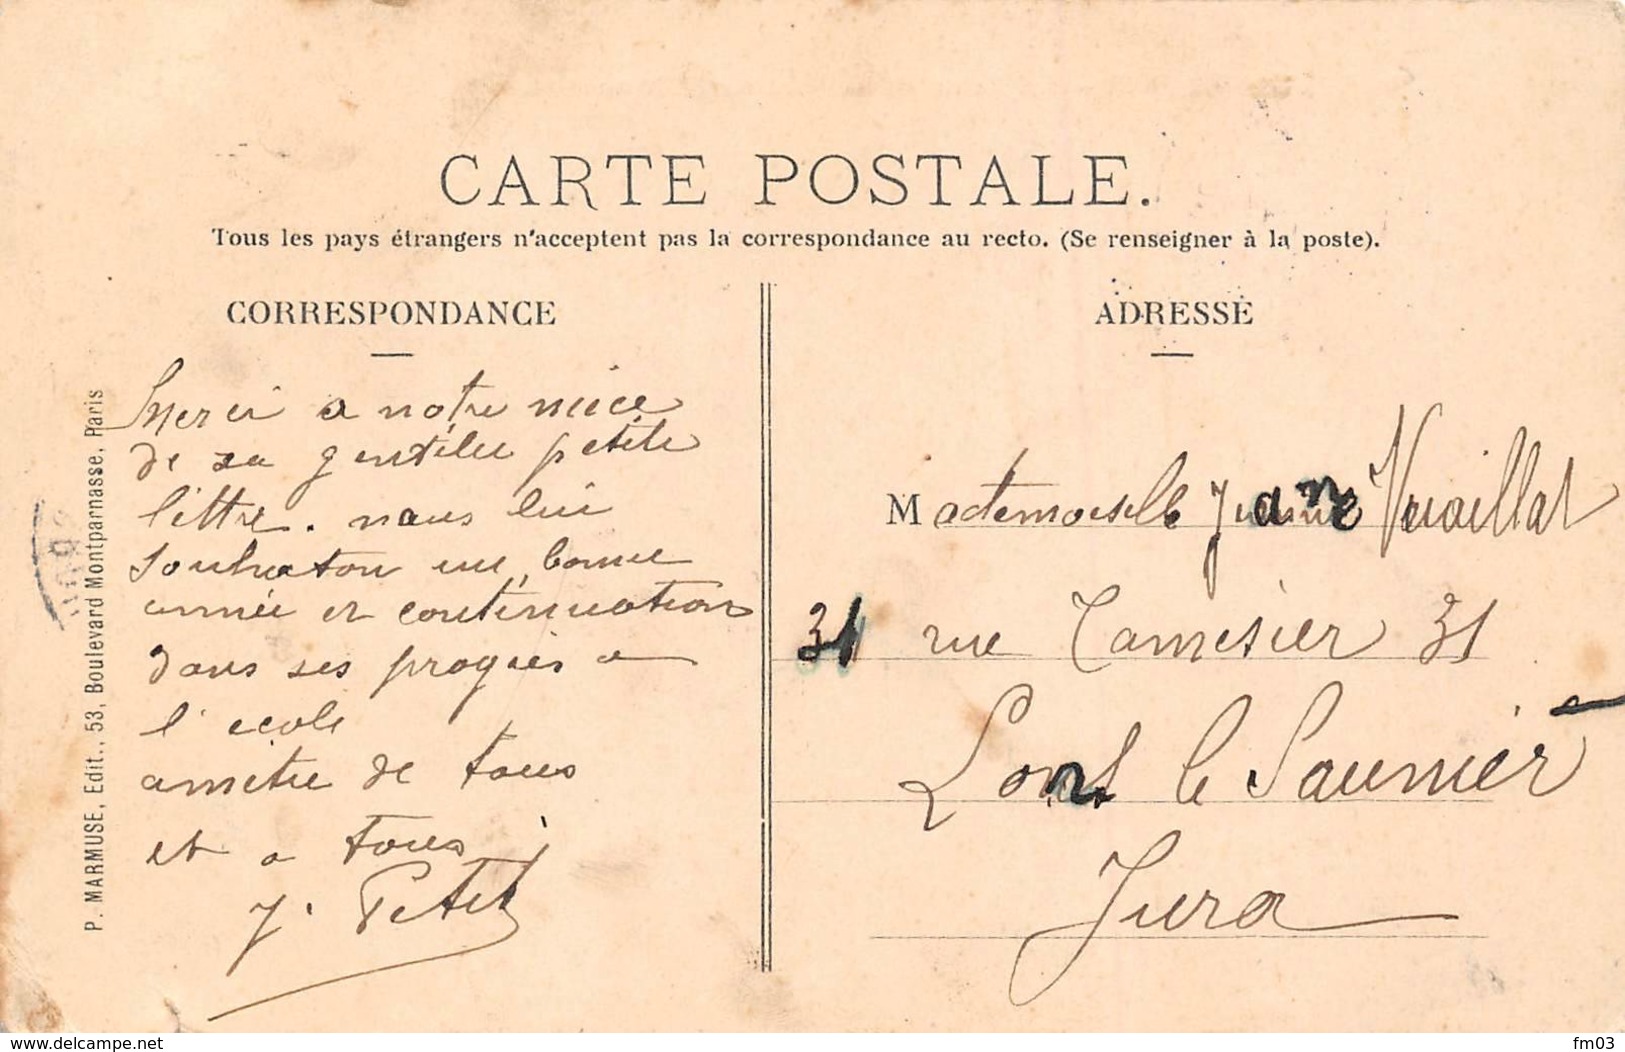 CARTE POSTALE.
Tous les pays étrangers n'acceptent pas la correspondance au recto. (Se renseigner à la poste).
CORRESPONDANCE
Merci a notre niece
de sa gentille petite
lettre. nous lui
souhaiton une bonne
année et continuation
dans ses progrès a
l'ecole
amitie de tous
et a tous
J. Petit
P. MARMUSE, Edit., 53, Boulevard Montparnasse, Paris
ADRESSE
Mademoiselle Jeanne Vuaillat
31 rue Tamisier 31
Lons le Saunier
Jura
www.delcampe.net
fm03